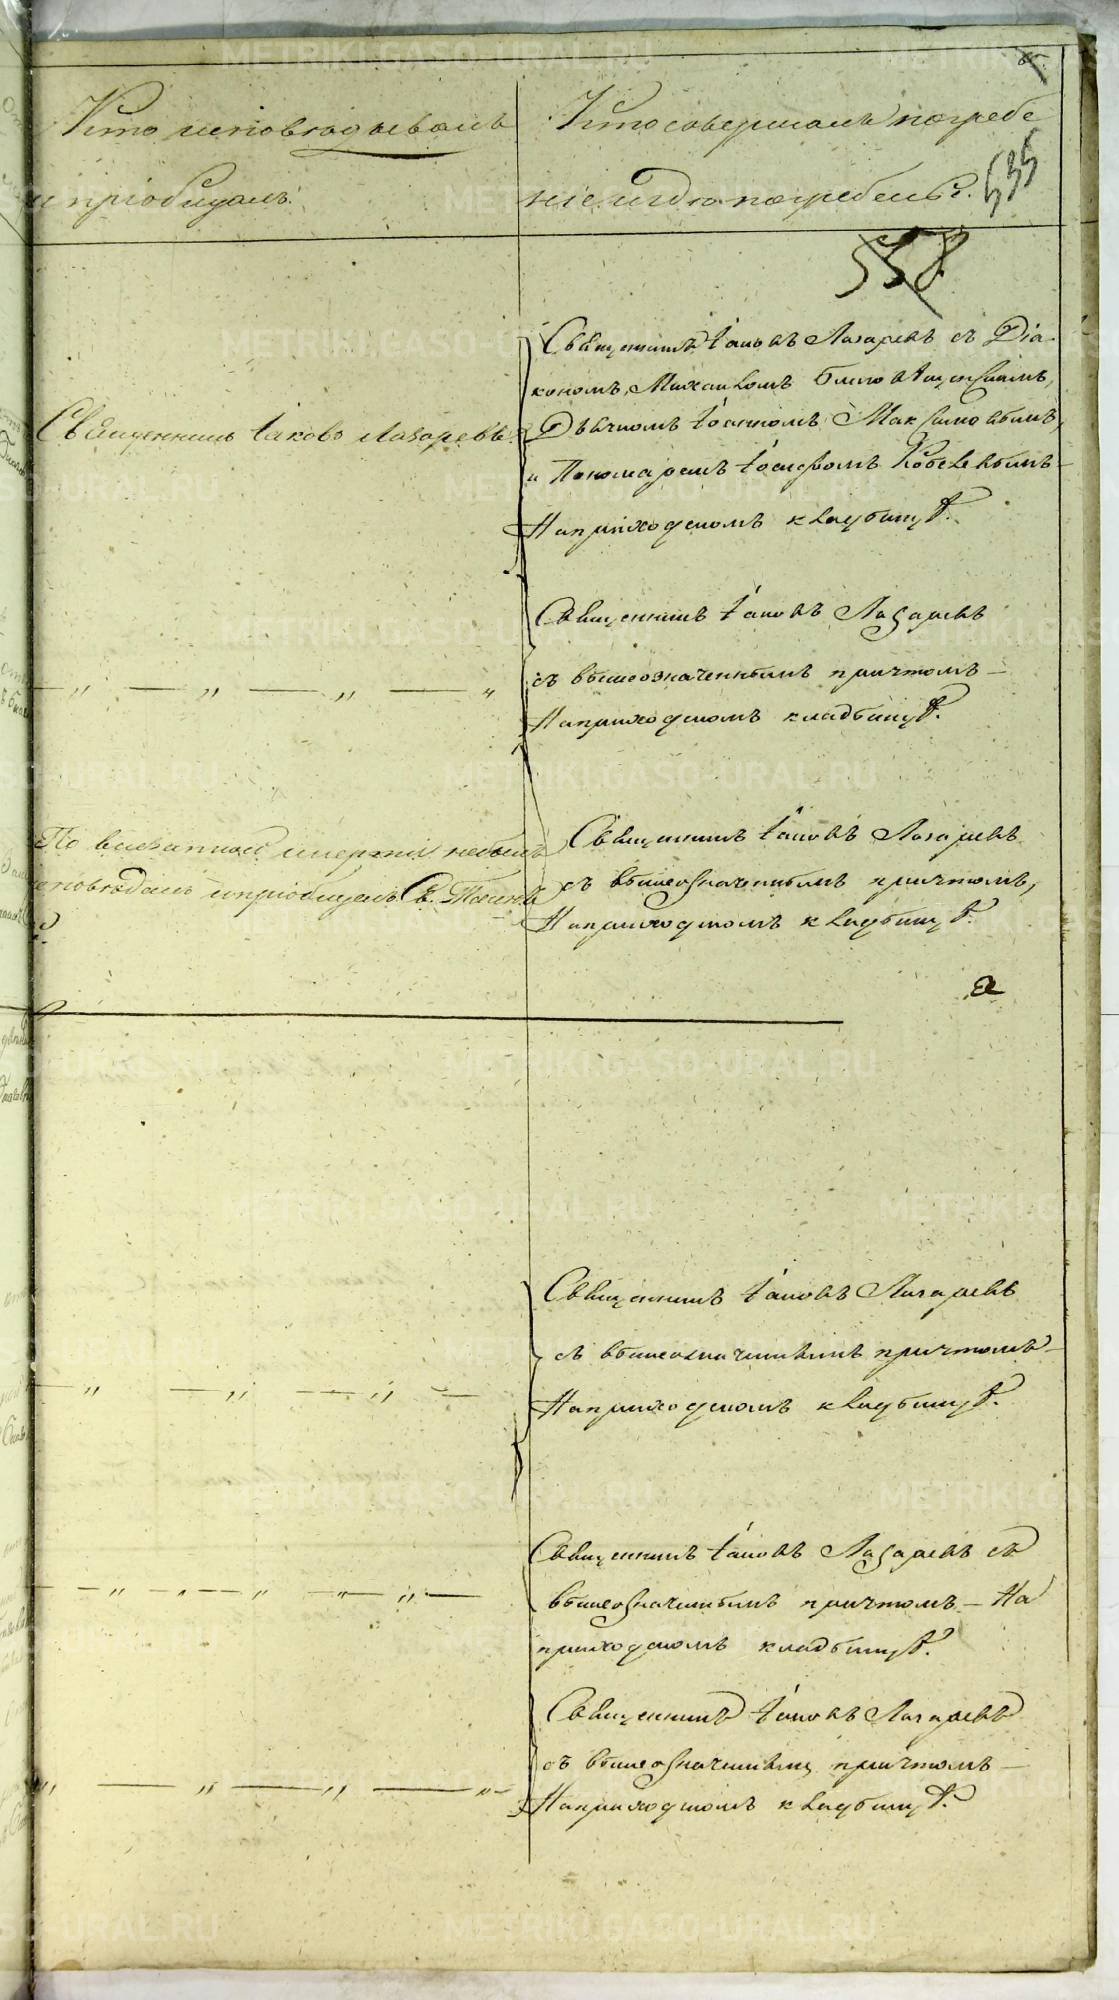 Кто исповѣдывалъ
и пріобщалъ.
Кто совершалъ погребе
ніе и гдѣ погребены.
535
558
Священникъ Іаковъ Лазаревъ.
Священникъ Іаковъ Лазаревъ съ Діа-
кономъ Михаиломъ Благовѣщенскимъ,
Дьячкомъ Іоанномъ Максимовымъ,
и Пономаремъ Іосифомъ
На приходскомъ кладбищѣ.
Священникъ Іаковъ Лазаревъ
съ вышеозначеннымъ причтомъ —
На приходскомъ кладбищѣ.
По внезапной смерти небылъ
исповѣданъ и пріобщенъ Св. Таинъ
Священникъ Іаковъ Лазаревъ
съ вышеозначеннымъ причтомъ,
На приходскомъ кладбищѣ.
Священникъ Іаковъ Лазаревъ
съ вышеозначеннымъ причтомъ —
На приходскомъ кладбищѣ.
Священникъ Іаковъ Лазаревъ съ
вышеозначеннымъ причтомъ — На
приходскомъ кладбищѣ.
Священникъ Іаковъ Лазаревъ
съ вышеозначеннымъ причтомъ —
На приходскомъ кладбищѣ.
METRIKI.GASO-URAL.RU